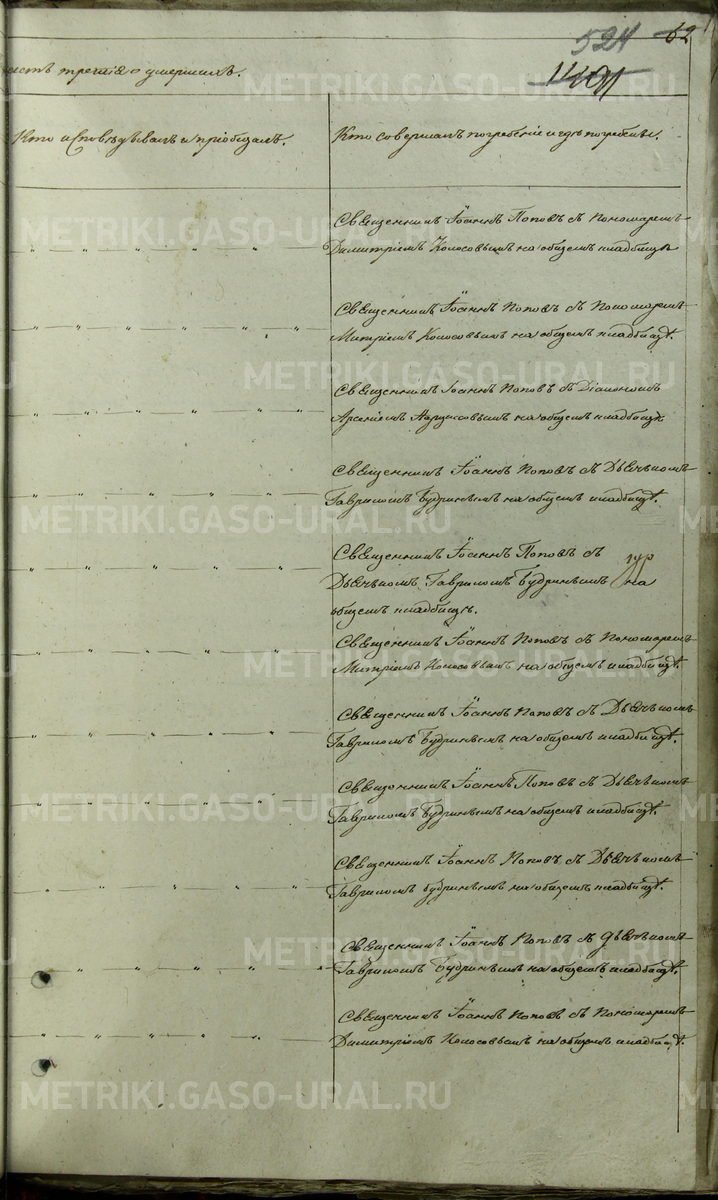 524 62
часть третія о умершихъ.
Кто исповѣдывалъ и пріобщалъ.
Кто совершалъ погребеніе и гдѣ погребены.
Священникъ Іоаннъ Поповъ съ Пономаремъ
Димитріемъ Колосовымъ на общемъ кладбищѣ
Священникъ Іоаннъ Поповъ съ Пономаремъ
Митріемъ Колосовымъ на общемъ кладбищѣ.
Священникъ Іоаннъ Поповъ съ Діакономъ
Арсеніемъ на общемъ кладбищѣ
Священникъ Іоаннъ Поповъ съ Дьячькомъ
Гавриломъ Будринымъ на общемъ кладбищѣ.
Священникъ Іоаннъ Поповъ съ
Дьячькомъ Гавриломъ Будринымъ на
общемъ кладбищѣ.
Священникъ Іоаннъ Поповъ съ Пономаремъ
Митріемъ Колосовымъ на общемъ кладбищѣ.
Священникъ Іоаннъ Поповъ съ Дьячькомъ
Гавриломъ Будринымъ на общемъ кладбищѣ.
Священникъ Іоаннъ Поповъ съ Дьячькомъ
Гавриломъ Будринымъ на общемъ кладбищѣ.
Священникъ Іоаннъ Поповъ съ Дьячькомъ
Гавриломъ Будринымъ на общемъ кладбищѣ.
Священникъ Іоаннъ Поповъ съ дьячькомъ
Гавриломъ Будринымъ на общемъ кладбищѣ.
Священникъ Іоаннъ Поповъ съ Пономаремъ
Димитріемъ Колосовымъ на общемъ кладбищѣ.
METRIKI.GASO-URAL.RU